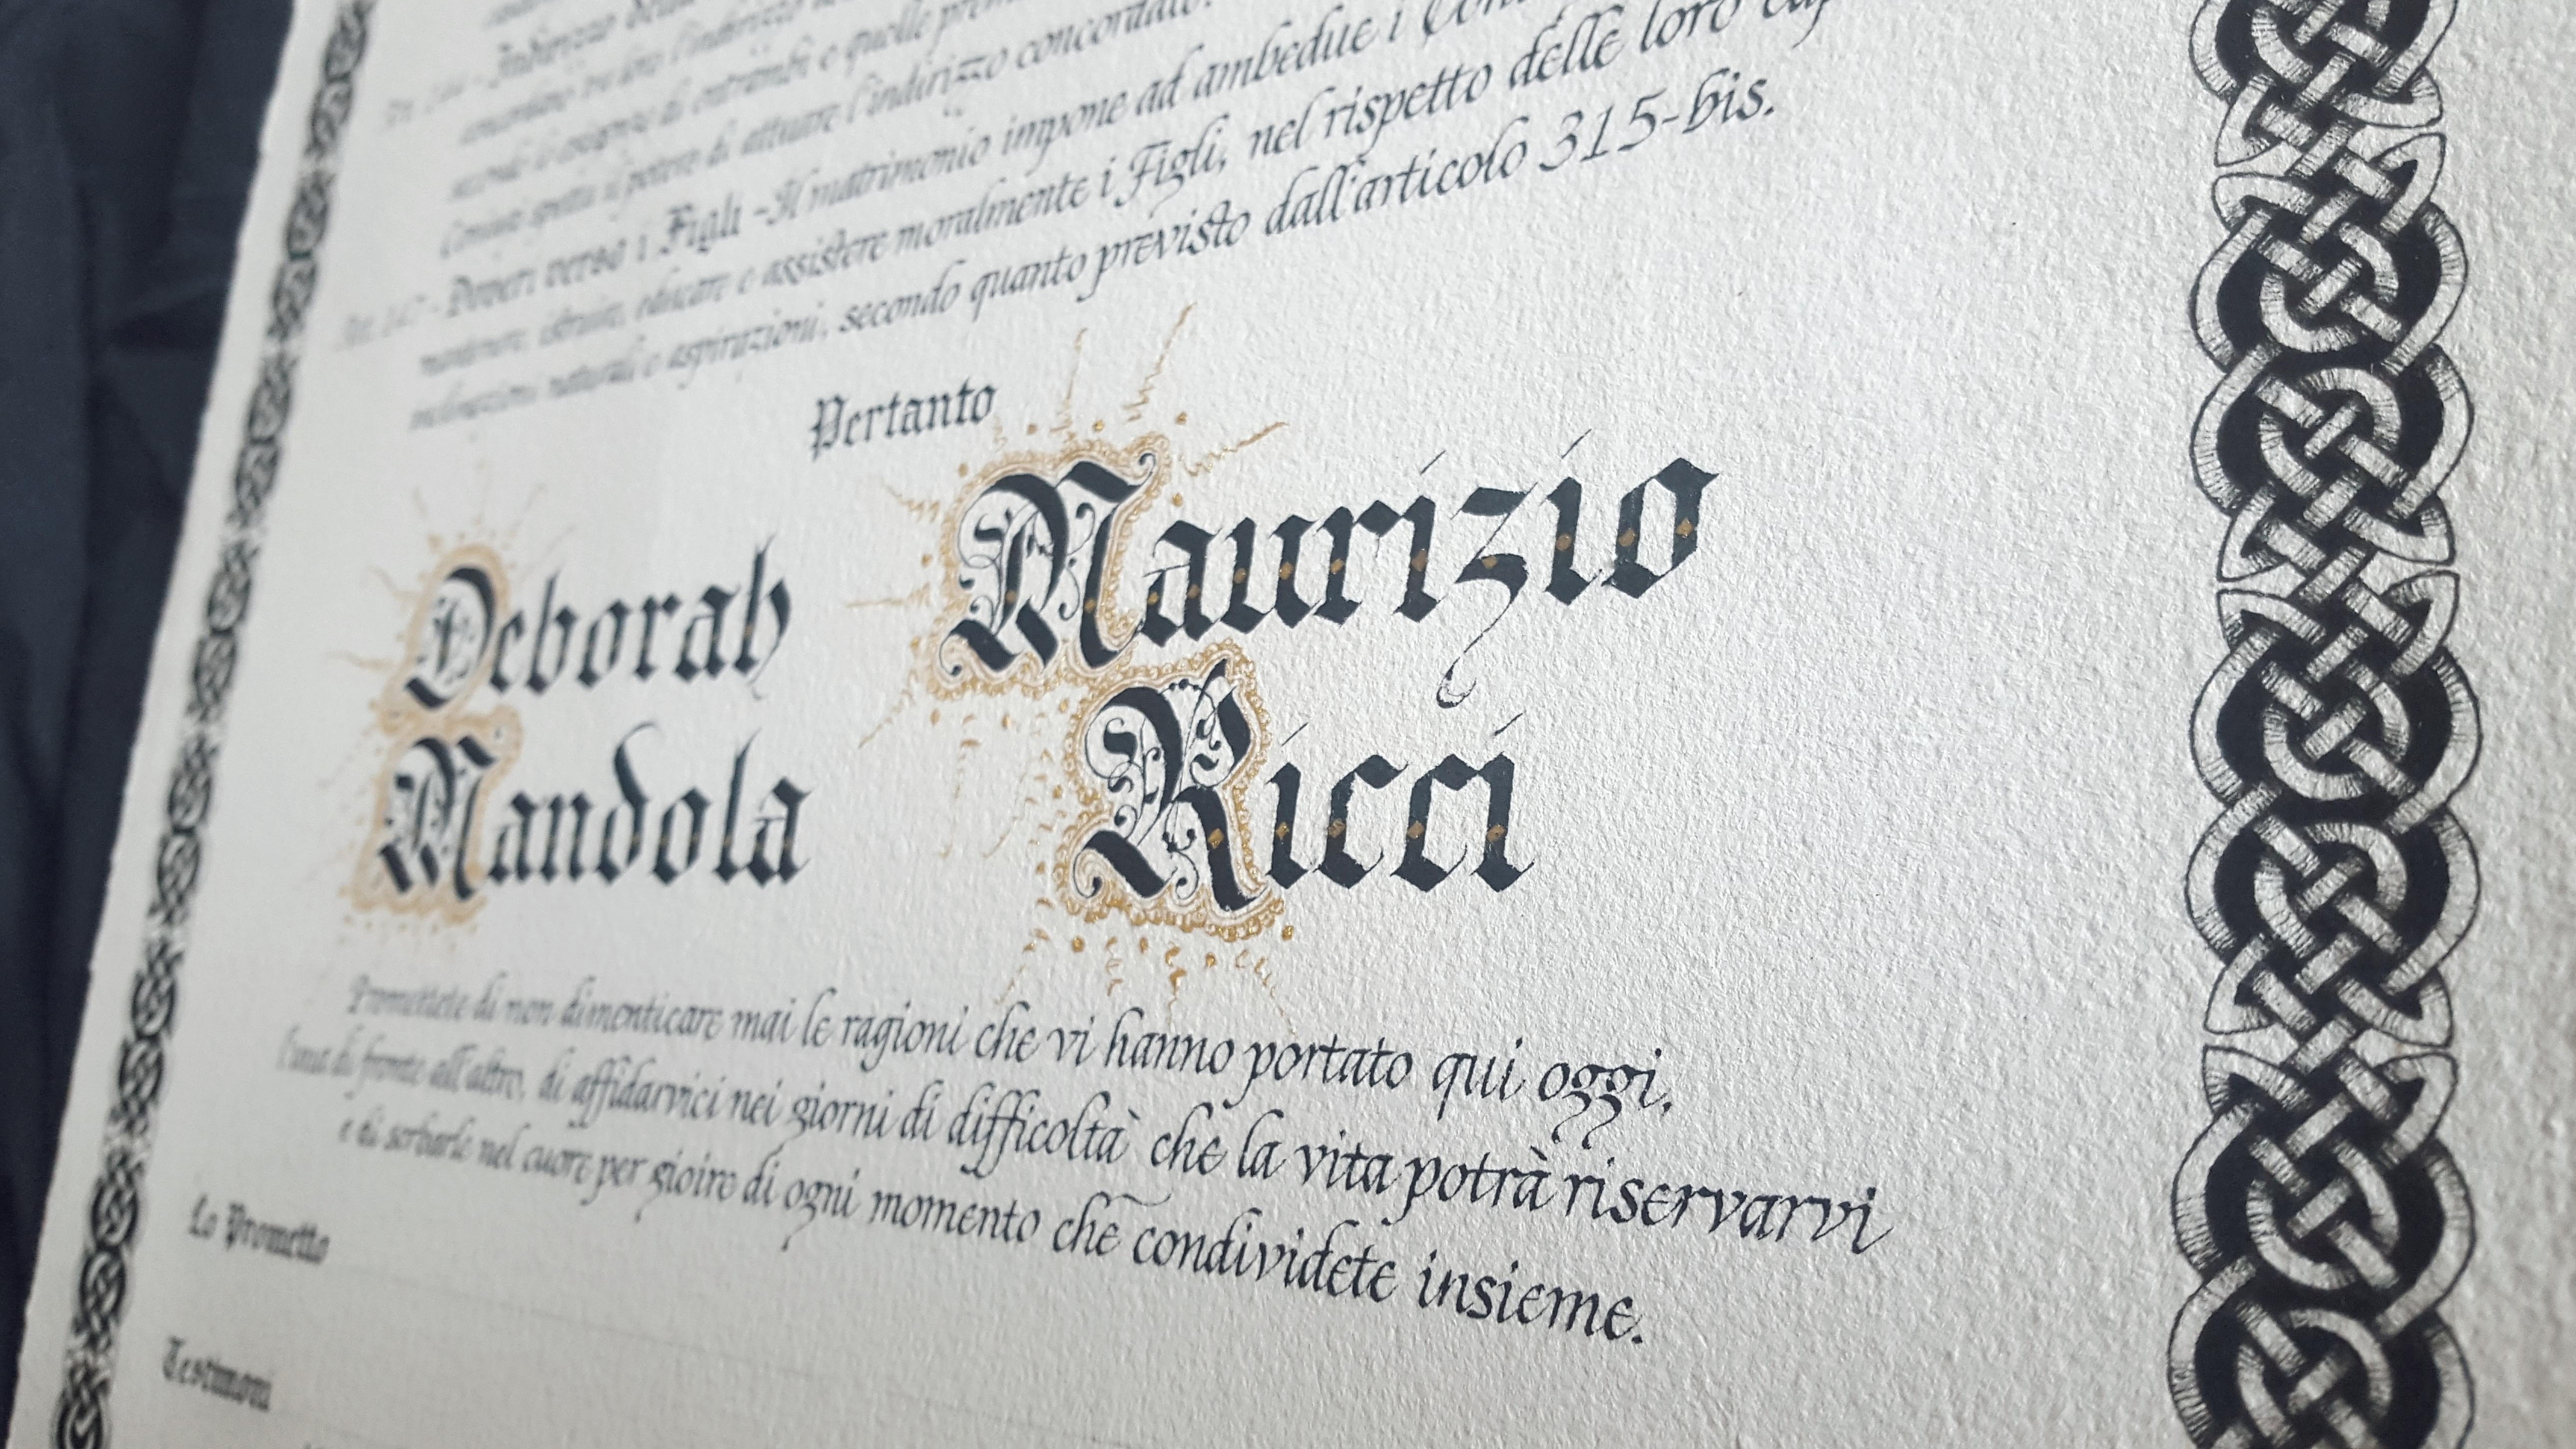 Indirizzo della
concordano tra loro l'indirizzo
secondo le esigenze di entrambi e quelle
Coniugi spetta il potere di attuare l'indirizzo concordato.
Art. 147 - Doveri verso i Figli - Il matrimonio impone ad ambedue i
mantenere, istruire, educare e assistere moralmente i Figli, nel rispetto delle loro
inclinazioni naturali e aspirazioni, secondo quanto previsto dall'articolo 315-bis.
Pertanto
Deborah Mandola
Maurizio Ricci
Promettete di non dimenticare mai le ragioni che vi hanno portato qui oggi,
l'una di fronte all'altro, di affidarvici nei giorni di difficoltà che la vita potrà riservarvi
e di serbarle nel cuore per gioire di ogni momento che condividete insieme.
Lo Prometto
Testimoni